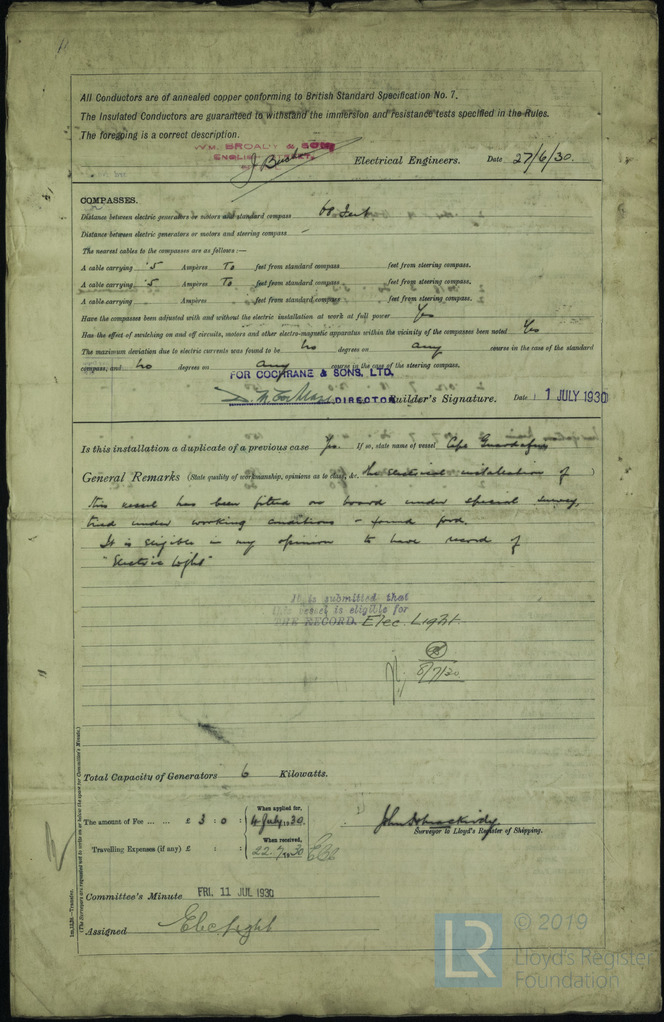 All Conductors are of annealed copper conforming to British Standard Specification No. 7.
The Insulated Conductors are guaranteed to withstand the immersion and resistance tests specified in the Rules.
The foregoing is a correct description.
WM. BROADY & SON
ENGLISH STREET,
Electrical Engineers. Date 27/6/30.
COMPASSES.
Distance between electric generators or motors and standard compass 68 feet
Distance between electric generators or motors and steering compass -
The nearest cables to the compasses are as follows:—
A cable carrying .5 Ampères To feet from standard compass feet from steering compass.
A cable carrying .5 Ampères To feet from standard compass feet from steering compass.
A cable carrying Ampères feet from standard compass feet from steering compass.
Have the compasses been adjusted with and without the electric installation at work at full power Yes
Has the effect of switching on and off circuits, motors and other electro-magnetic apparatus within the vicinity of the compasses been noted Yes
The maximum deviation due to electric currents was found to be No degrees on any course in the case of the standard
compass, and No degrees on any course in the case of the steering compass.
FOR COCHRANE & SONS, LTD.
DIRECTOR Builder's Signature. Date 1 JULY 1930
Is this installation a duplicate of a previous case Yes. If so, state name of vessel Cape Guardafui
General Remarks (State quality of workmanship, opinions as to class, &c. The electrical installation of )
this vessel has been fitted on board under special survey,
tried under working conditions & found good.
It is eligible in my opinion to have record of
"Electric Light"
It is submitted that
this vessel is eligible for
THE RECORD. Elec. Light
8/7/30
Total Capacity of Generators 6 Kilowatts.
The amount of Fee ... ... £ 3 : 0 :
When applied for,
4 July 1930
Travelling Expenses (if any) £ : :
When received,
22.7.1930
Surveyor to Lloyd's Register of Shipping.
Committee's Minute FRI. 11 JUL 1930
Assigned Elec Light
(The Surveyors are requested not to write on or below the space for Committee's Minute.)
© 2019
Lloyd's Register
Foundation
LR